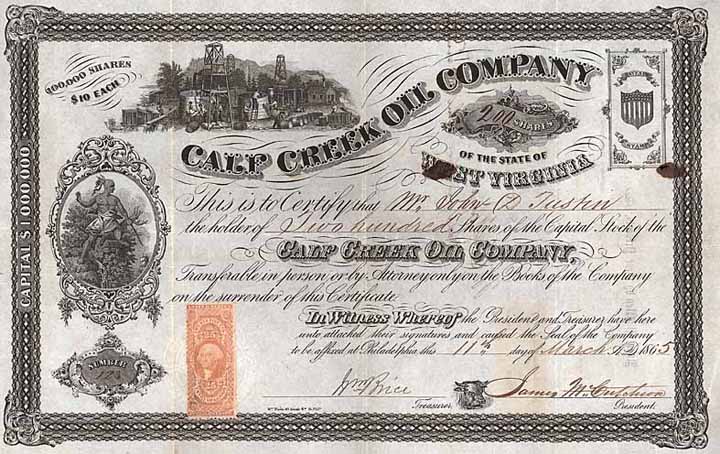 100,000 SHARES
$10 EACH
CALF CREEK OIL COMPANY
200 SHARES
OF THE STATE OF
WEST VIRGINIA
STAMP
CAPITAL $1,000,000
This is to Certify that Mr. John D Tustin
the holder of Two hundred Shares of the Capital Stock of the
CALF CREEK OIL COMPANY,
Transferable, in person or by Attorney only on the Books of the Company
on the surrender of this Certificate.
In Witness Whereof the President and Treasurer have here
unto attached their signatures and caused the Seal of the Company
to be affixed at Philadelphia, this 11th day of March A.D. 1865
NUMBER
Wm Price
Treasurer.
James McCutcheon
President.